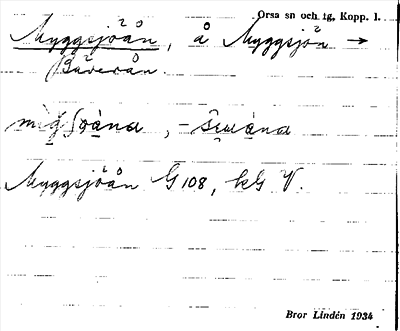 Orsa sn och tg, Kopp. l.
Myggsjöån, å Myggsjön →
Bäverån.
Myggsjöån G 108, kG V.
Bror Lindén 1934